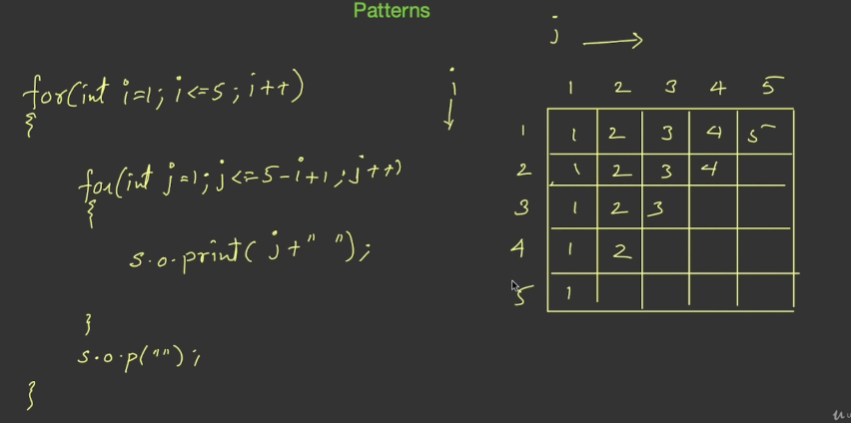 Patterns
for(int i=1; i<=5; i++)
{
for(int j=1; j<=5-i+1; j++)
{
s.o.print( j+" ");
}
s.o.p("");
}
j
i
1 2 3 4 5
1 1 2 3 4 5
2 1 2 3 4
3 1 2 3
4 1 2
5 1